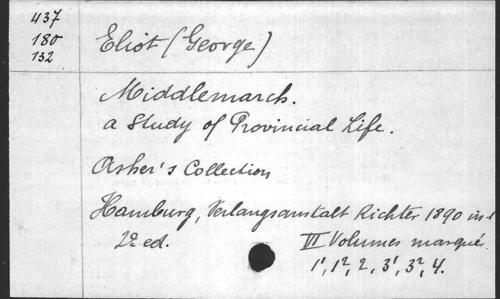 437
180
132
Eliot (George)
Middlemarch.
a Study of Provincial Life.
Asher's Collection
Hamburg, Verlangsanstalt Richter 1890 in-
2e ed.
VI Volumes marqué.
1¹, 1², 2, 3¹, 3², 4.